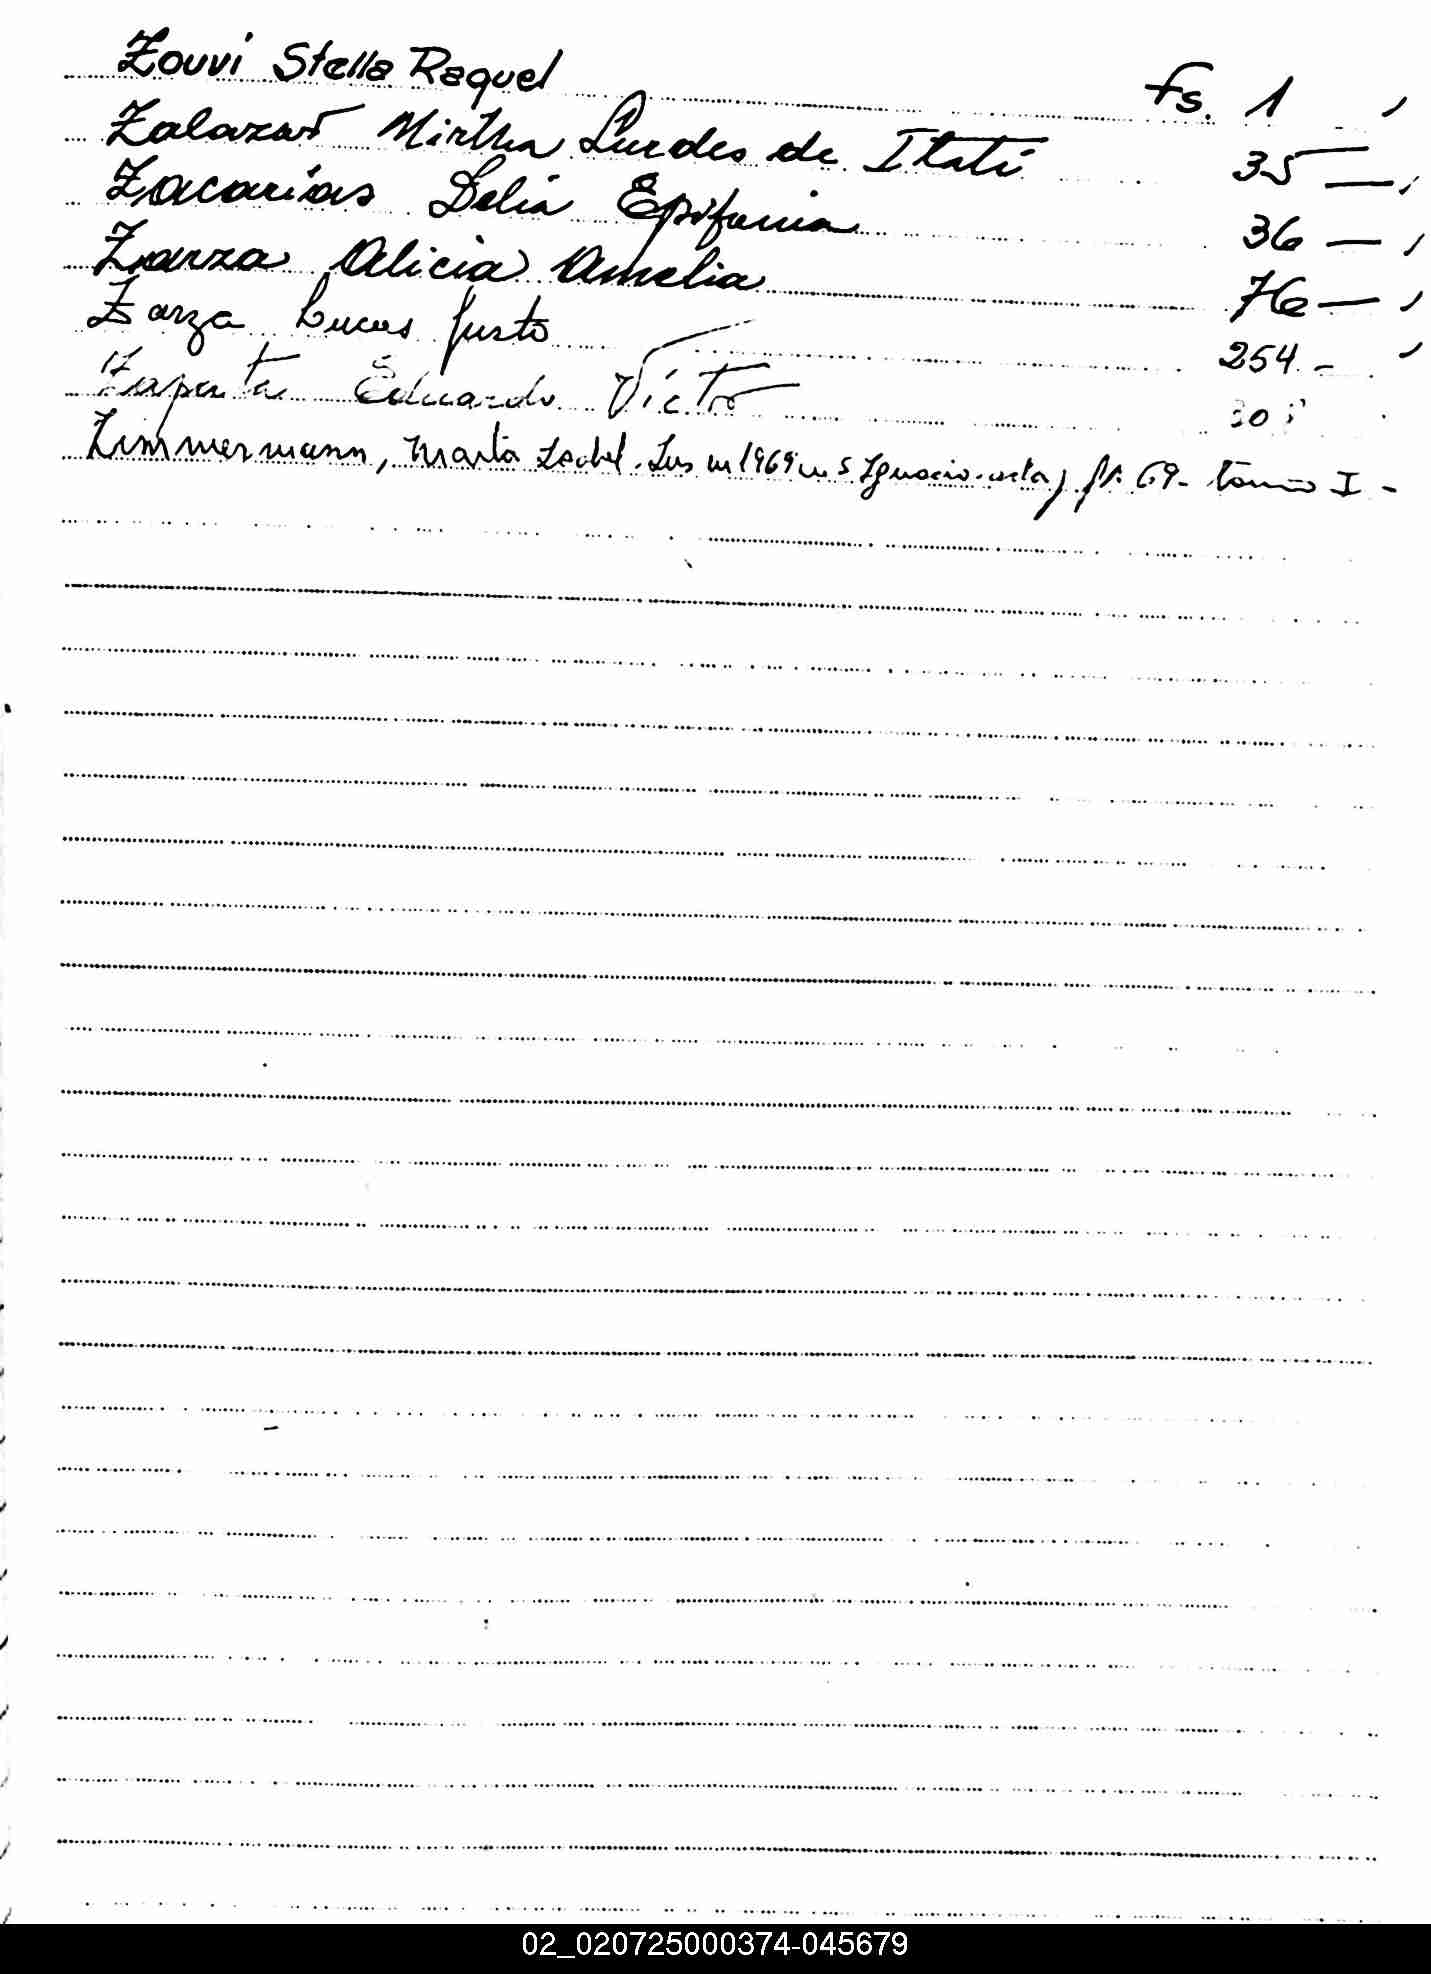 Zouvi Stella Raquel fs. 1
Zalazar Mirtha Lurdes de Itatí 35 —
Zacarias Delia Epifania 36 —
Zarza Alicia Amelia 76 —
Zarza Lucas Justo 254 -
Zapata Eduardo Víctor 30
Zimmermann, Marta Isabel. Ins en 1969 en S Ignacio. acta ) fs. 69 - tomo I -
02_020725000374-045679